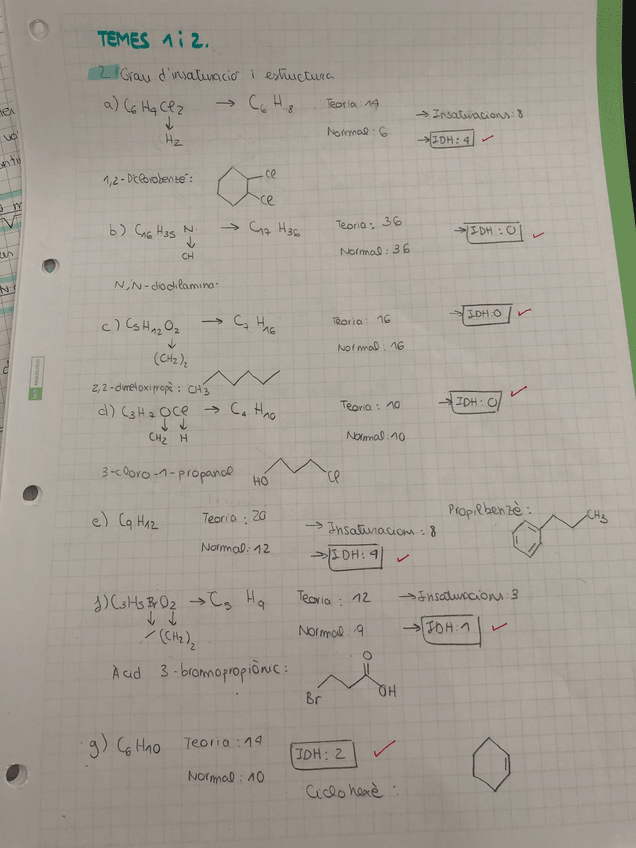 TEMES 1 i 2.
2. Grau d'insaturació i estructura
a) C6H4Cl2 → C6H8 Teoria: 14 → Insaturacions: 8
↓
H2 Normal: 6 → IDH: 4 ✓
1,2-Diclorobenzè: Cl
Cl
b) C16H35 N → C17 H36 Teoria: 36 → IDH: 0 ✓
↓
CH Normal: 36
N,N-dioctilamina:
c) C5H12O2 → C7 H16 Teoria: 16 → IDH: 0 ✓
↓
(CH2)2 Normal: 16
2,2-dimetoxipropè: CH3
d) C3H7OCl → C4 H10 Teoria: 10 → IDH: 0 ✓
↓ ↓
CH2 H Normal: 10
3-cloro-1-propanol HO Cl
e) C9H12 Teoria: 20 → Insaturacions: 8 Propilbenzè: CH3
Normal: 12 → IDH: 4 ✓
f) C3H5BrO2 → C5 H9 Teoria: 12 → Insaturacions: 3
↓ ↓
(CH2)2 Normal: 9 → IDH: 1 ✓
Àcid 3-bromopropiònic: Br O OH
g) C6H10 Teoria: 14 IDH: 2 ✓
Normal: 10 Ciclohexè: